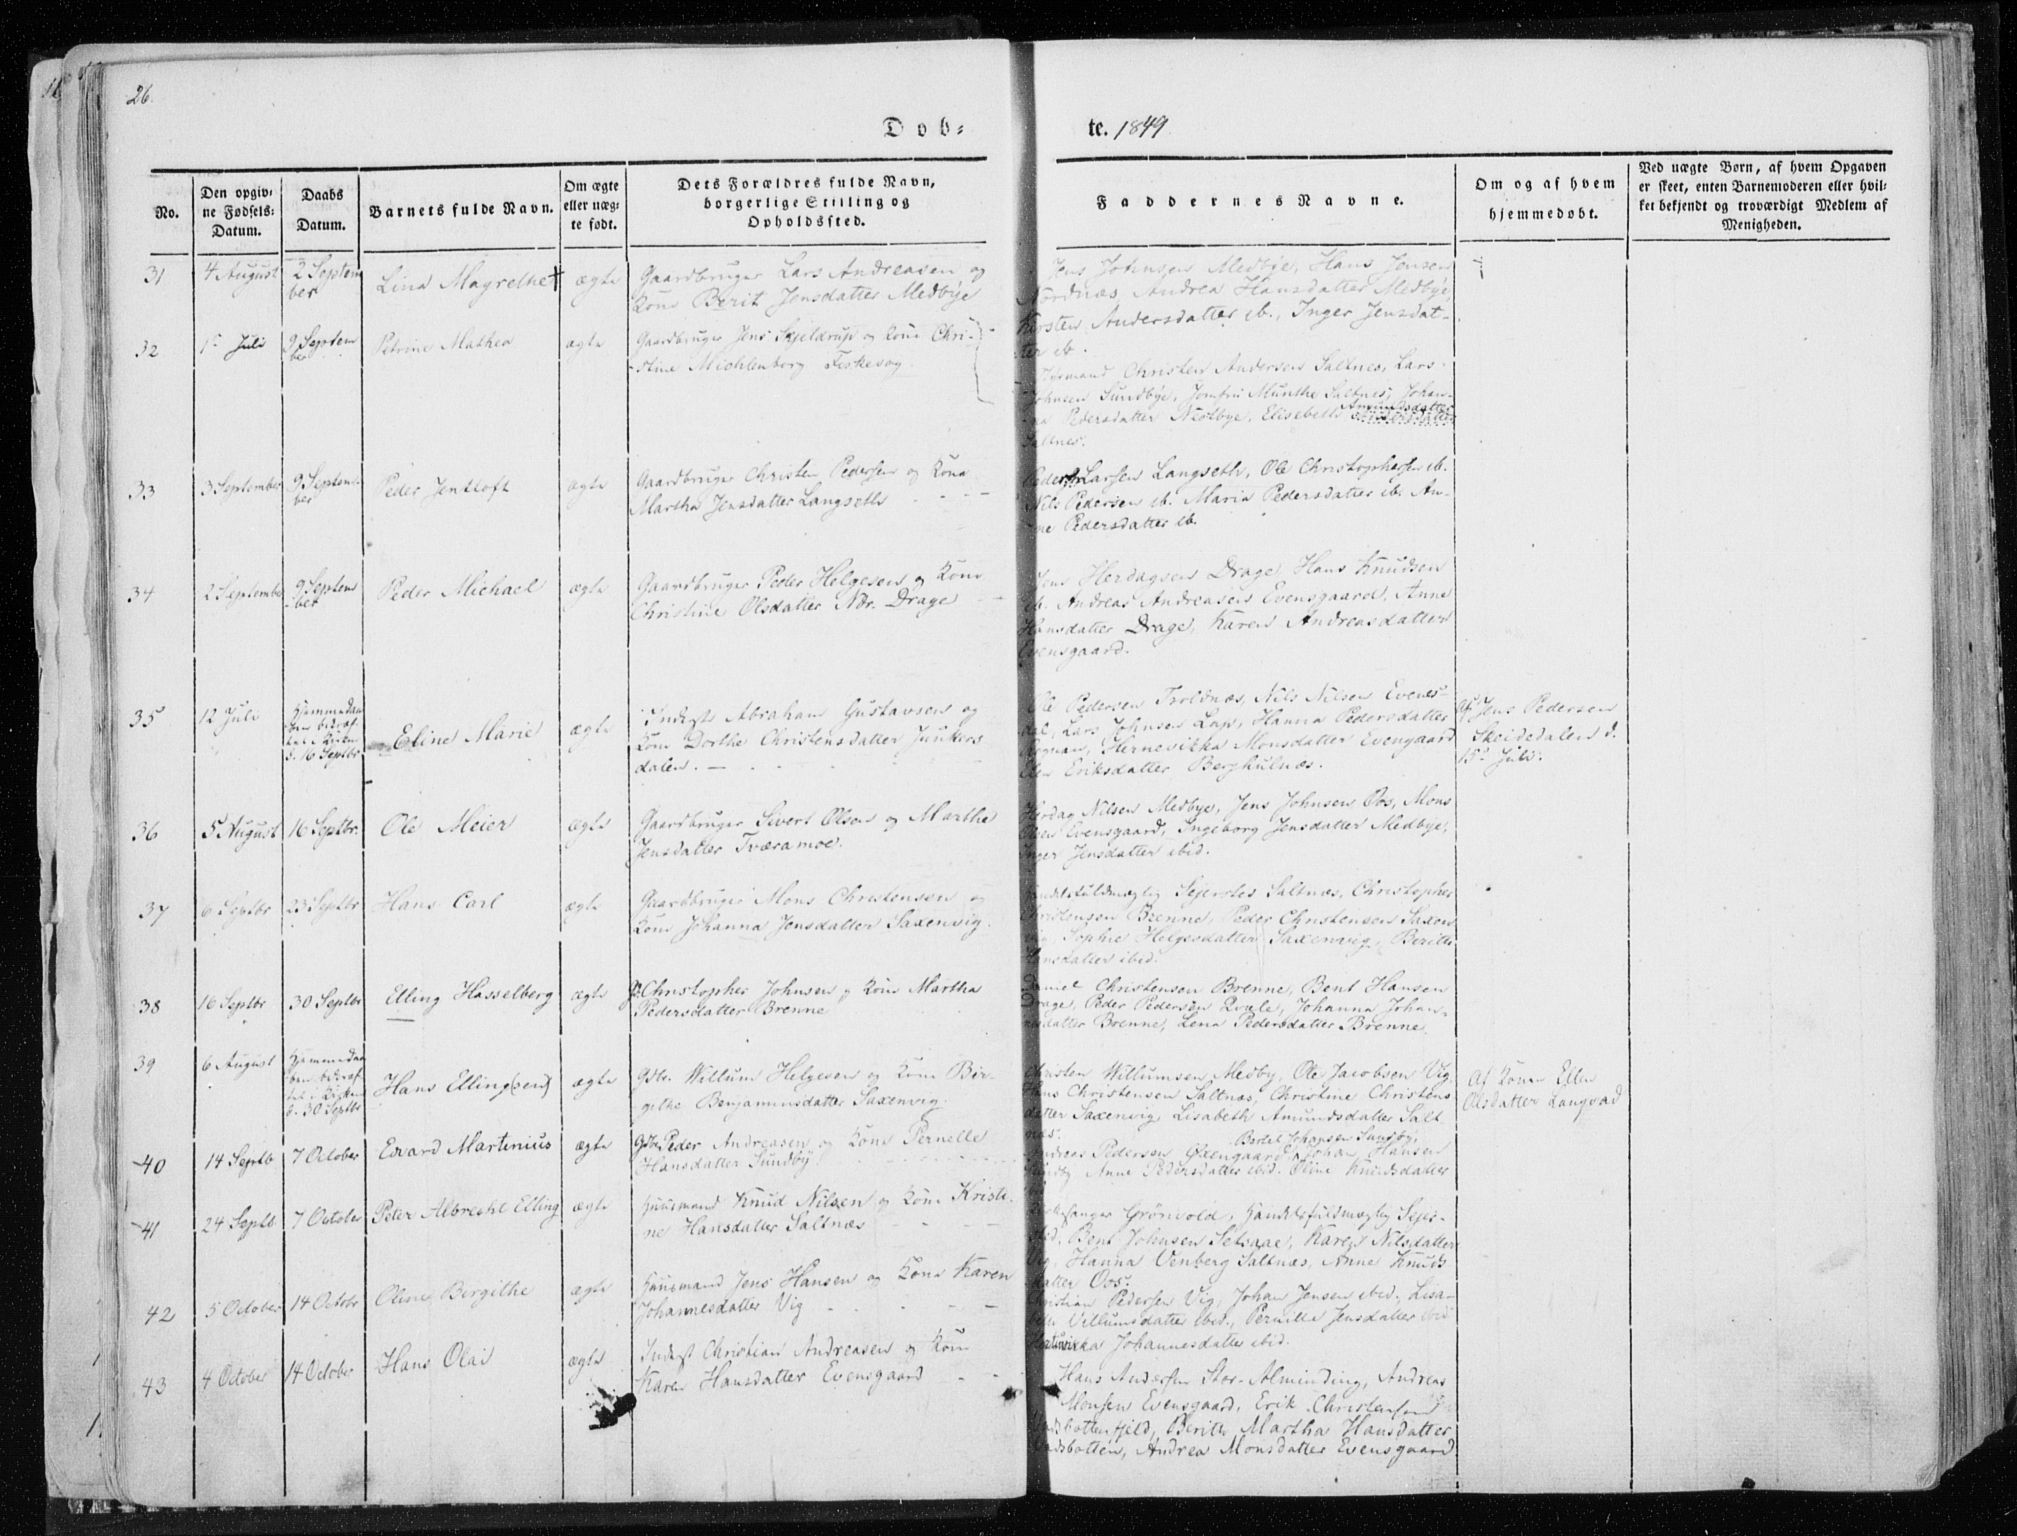 26.
Døb-
te. 1849.
No.
Den opgiv-
ne Fødsels-
Datum.
Daabs
Datum.
Barnets fulde Navn.
Om ægte
eller uæg-
te født.
Dets Forældres fulde Navn,
borgerlige Stilling og
Opholdssted.
Faddernes Navne.
Om og af hvem
hjemmedøbt.
Ved uægte Børn, af hvem Opgaven
er skeet, enten Barnemoderen eller hvil-
ket bekjendt og troværdigt Medlem af
Menigheden.
31
4 August
2 Septem
ber
Lina Magrethe +
ægte
Gaardbruger Lars Andreasen og
Kone Berit Jensdatter Medbye
Jens Johnsen Medbye, Hans Jensen
Nordnæs, Andrea Hansdatter Medbye,
Kirsten Andersdatter ib., Inger Jensdat-
ter ib.
32
1e Juli
9 Septem
ber
Petrine Mathea
ægte
Gaardbruger Jens Skjeldrup og Kone Chri-
stine Michlenborg Fiskevog.
Christen Andersen Saltnes, Lars
Johnsen Sundbye, Jomfru Munthe Saltnes, Johan-
na Pedersdatter Medbye, Elisabeth Amundsdatter
Saltnes.
33
3 September
9 Septem-
ber
Peder Jentloft
ægte
Gaardbruger Christen Pedersen og Kone
Martha Jensdatter Langseth
Peder Larsen Langseth, Ole Christophersen ib.
Nils Pedersen ib. Maria Pedersdatter ib. An-
ne Pedersdatter ib.
34
2 September
9 Septem
ber
Peder Michael
ægte
Gaardbruger Peder Helgesen og Kone
Christine Olsdatter Ndr. Drage
Jens Herdagsen Drage, Hans Knudsen
ib. Andreas Andreasen Evensgaard, Anne
Hansdatter Drage, Karen Andreasdatter
Evensgaard.
35
12 Juli
Hjemmedaa
ben bekræf-
tet i Kirken
d. 16 Septbr
Eline Marie
ægte
Inderst Abraham Gustavsen og
Kone Dorthe Christensdatter Junkers
dalen.
Ole Pedersen Troldnæs, Nils Nilsen Evenes-
dal, Lars Johnsen Lap, Hanna Pedersdatter
Rognan, Hernevikka Monsdatter Evengaard
Elen Eriksdatter Berghulnæs.
Af Jens Pedersen
Skeidedalen d.
15e Juli.
36
5 August
16 Septbr.
Ole Meier
ægte
Gaardbruger Sivert Olsen og Marthe
Jensdatter Tværamoe.
Herdag Nilsen Medbye, Jens Johnsen Oos, Mons
Olsen Evensgaard, Ingeborg Jensdatter Medbye,
Inger Jensdatter ibid.
37
6 Septbr
23 Septbr
Hans Carl
ægte
Gaardbruger Mons Christensen og
Kone Johanna Jensdatter Saxenvig.
Handelsfuldmægtig Sejersted Saltnæs, Christopher
Christensen Brenne, Peder Christensen Saxen
vig, Sophie Helgesdatter Saxenvig, Berith
Hansdatter ibid.
38
16 Septbr
30 Septbr
Elling Hasselberg
ægte
Christopher Johnsen og Kone Martha
Pedersdatter Brenne
Daniel Christensen Brenne, Bent Hansen
Drage, Peder Pedersen Qvale, Johanna Johan-
nesdatter Brenne, Lena Pedersdatter Brenne.
39
6 August
Hjemmedaa
ben bekræf
tet i Kirken
d. 30 Septbr
Hans Elling(sen)
ægte
Gdbr. Willum Helgesen og Kone Bir-
githe Benjaminsdatter Saxenvig.
Christen Willumsen Medby, Ole Jacobsen Vig
Hans Christensen Saltnæs, Christine Christens
datter Saxenvig, Lisabeth Amundsdatter Salt
næs.
Af Konen Ellen
Olsdatter Langvad
40
14 Septb
7 October
Evard Martinius
ægte
Gdbr Peder Andreasen og Kone Pernelle
Hansdatter Sundby
Bertel Johansen Sundby,
Andreas Pedersen Øxengaard, Johan Hansen
Sundby Anne Pedersdatter ibid. Oline Knudsdatter
41
24 Septb
7 October
Peter Albrecht Elling
ægte
Huusmand Knud Nilsen og Kone Kristi-
ne Hansdatter Saltnæs
Kirkesanger Grönvold, Handelsfuldmægtig Sejer-
sted, Bent Johnsen Setsaae, Karen Nilsdatter
Vig, Hanna Venberg Saltnæs, Anne Knuds
datter Oos.
42
5 October
14 Octobr
Oline Birgithe
ægte
Huusmand Jens Hansen og Kone Karen
Johannesdatter Vig
Christian Pedersen Vig, Johan Jensen ibid. Lisa-
beth Villumsdatter ibid., Pernille Jensdatter ibid
Johannesdatter ibid.
43
4 October
14 October
Hans Olai
ægte
Inderst Christian Andreasen og Kone
Karen Hansdatter Evensgaard
Hans Andersen Stor-Alminding, Andreas
Monsen Evensgaard, Erik Christensen
Vadsbottenfjeld, Berith Martha Hansdatter
Vadsbotten, Andrea Monsdatter Evensgaard